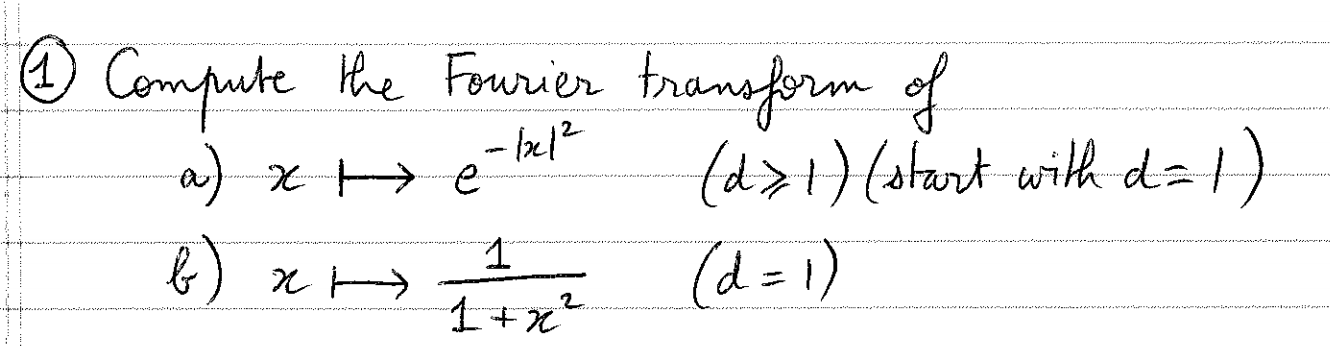 ① Compute the Fourier transform of
a) x ⟼ e^{-|x|^2} (d ⩾ 1) (start with d = 1)
b) x ⟼ \frac{1}{1+x^2} (d = 1)